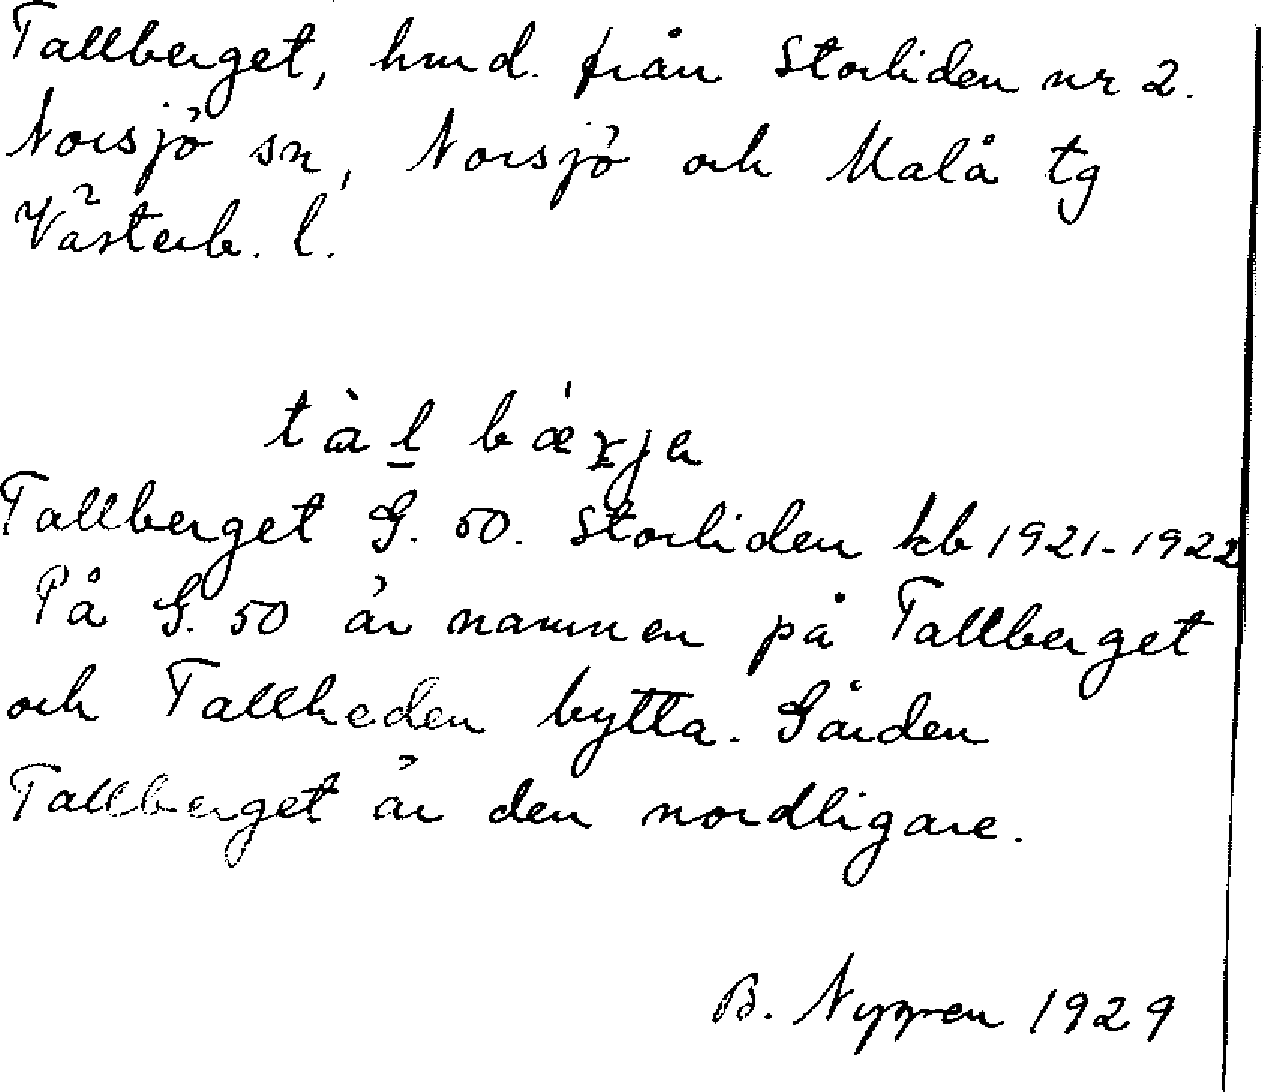 Tallberget, hmd. från Storliden nr 2.
Norsjö sn, Norsjö och Malå tg
Västerb. l.
tàl bǽrja
Tallberget G. 50. Storliden kb 1921-1922
På G. 50 är namnen på Tallberget
och Tallheden bytta. Gården
Tallberget är den nordligare.
B. Nyppen 1929